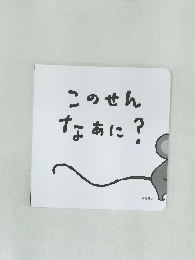 このせん
なあに?